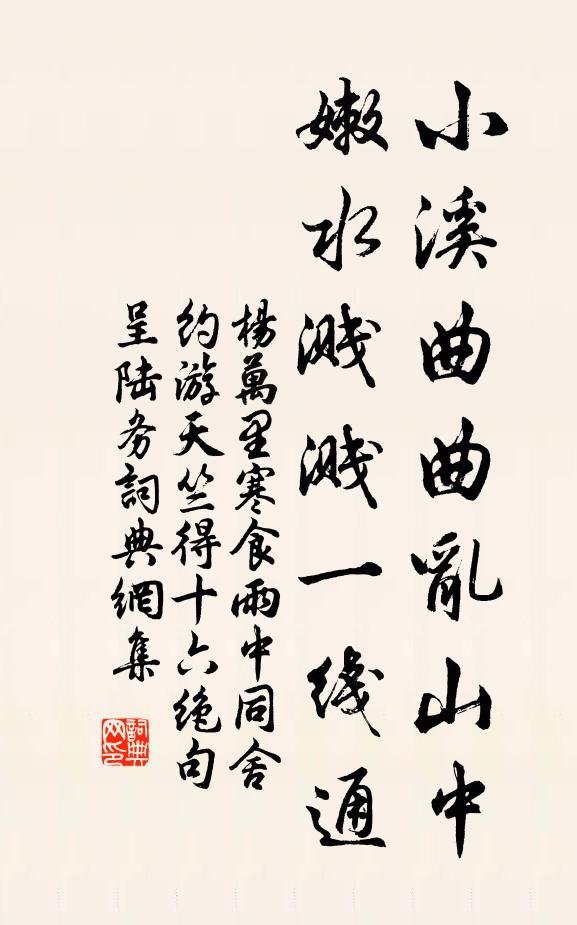 小溪曲曲亂山中
嫩水濺濺一线通
楊萬里寒食雨中同舍
约游天竺得十六绝句
呈陆务詞典網集
詞典
网印